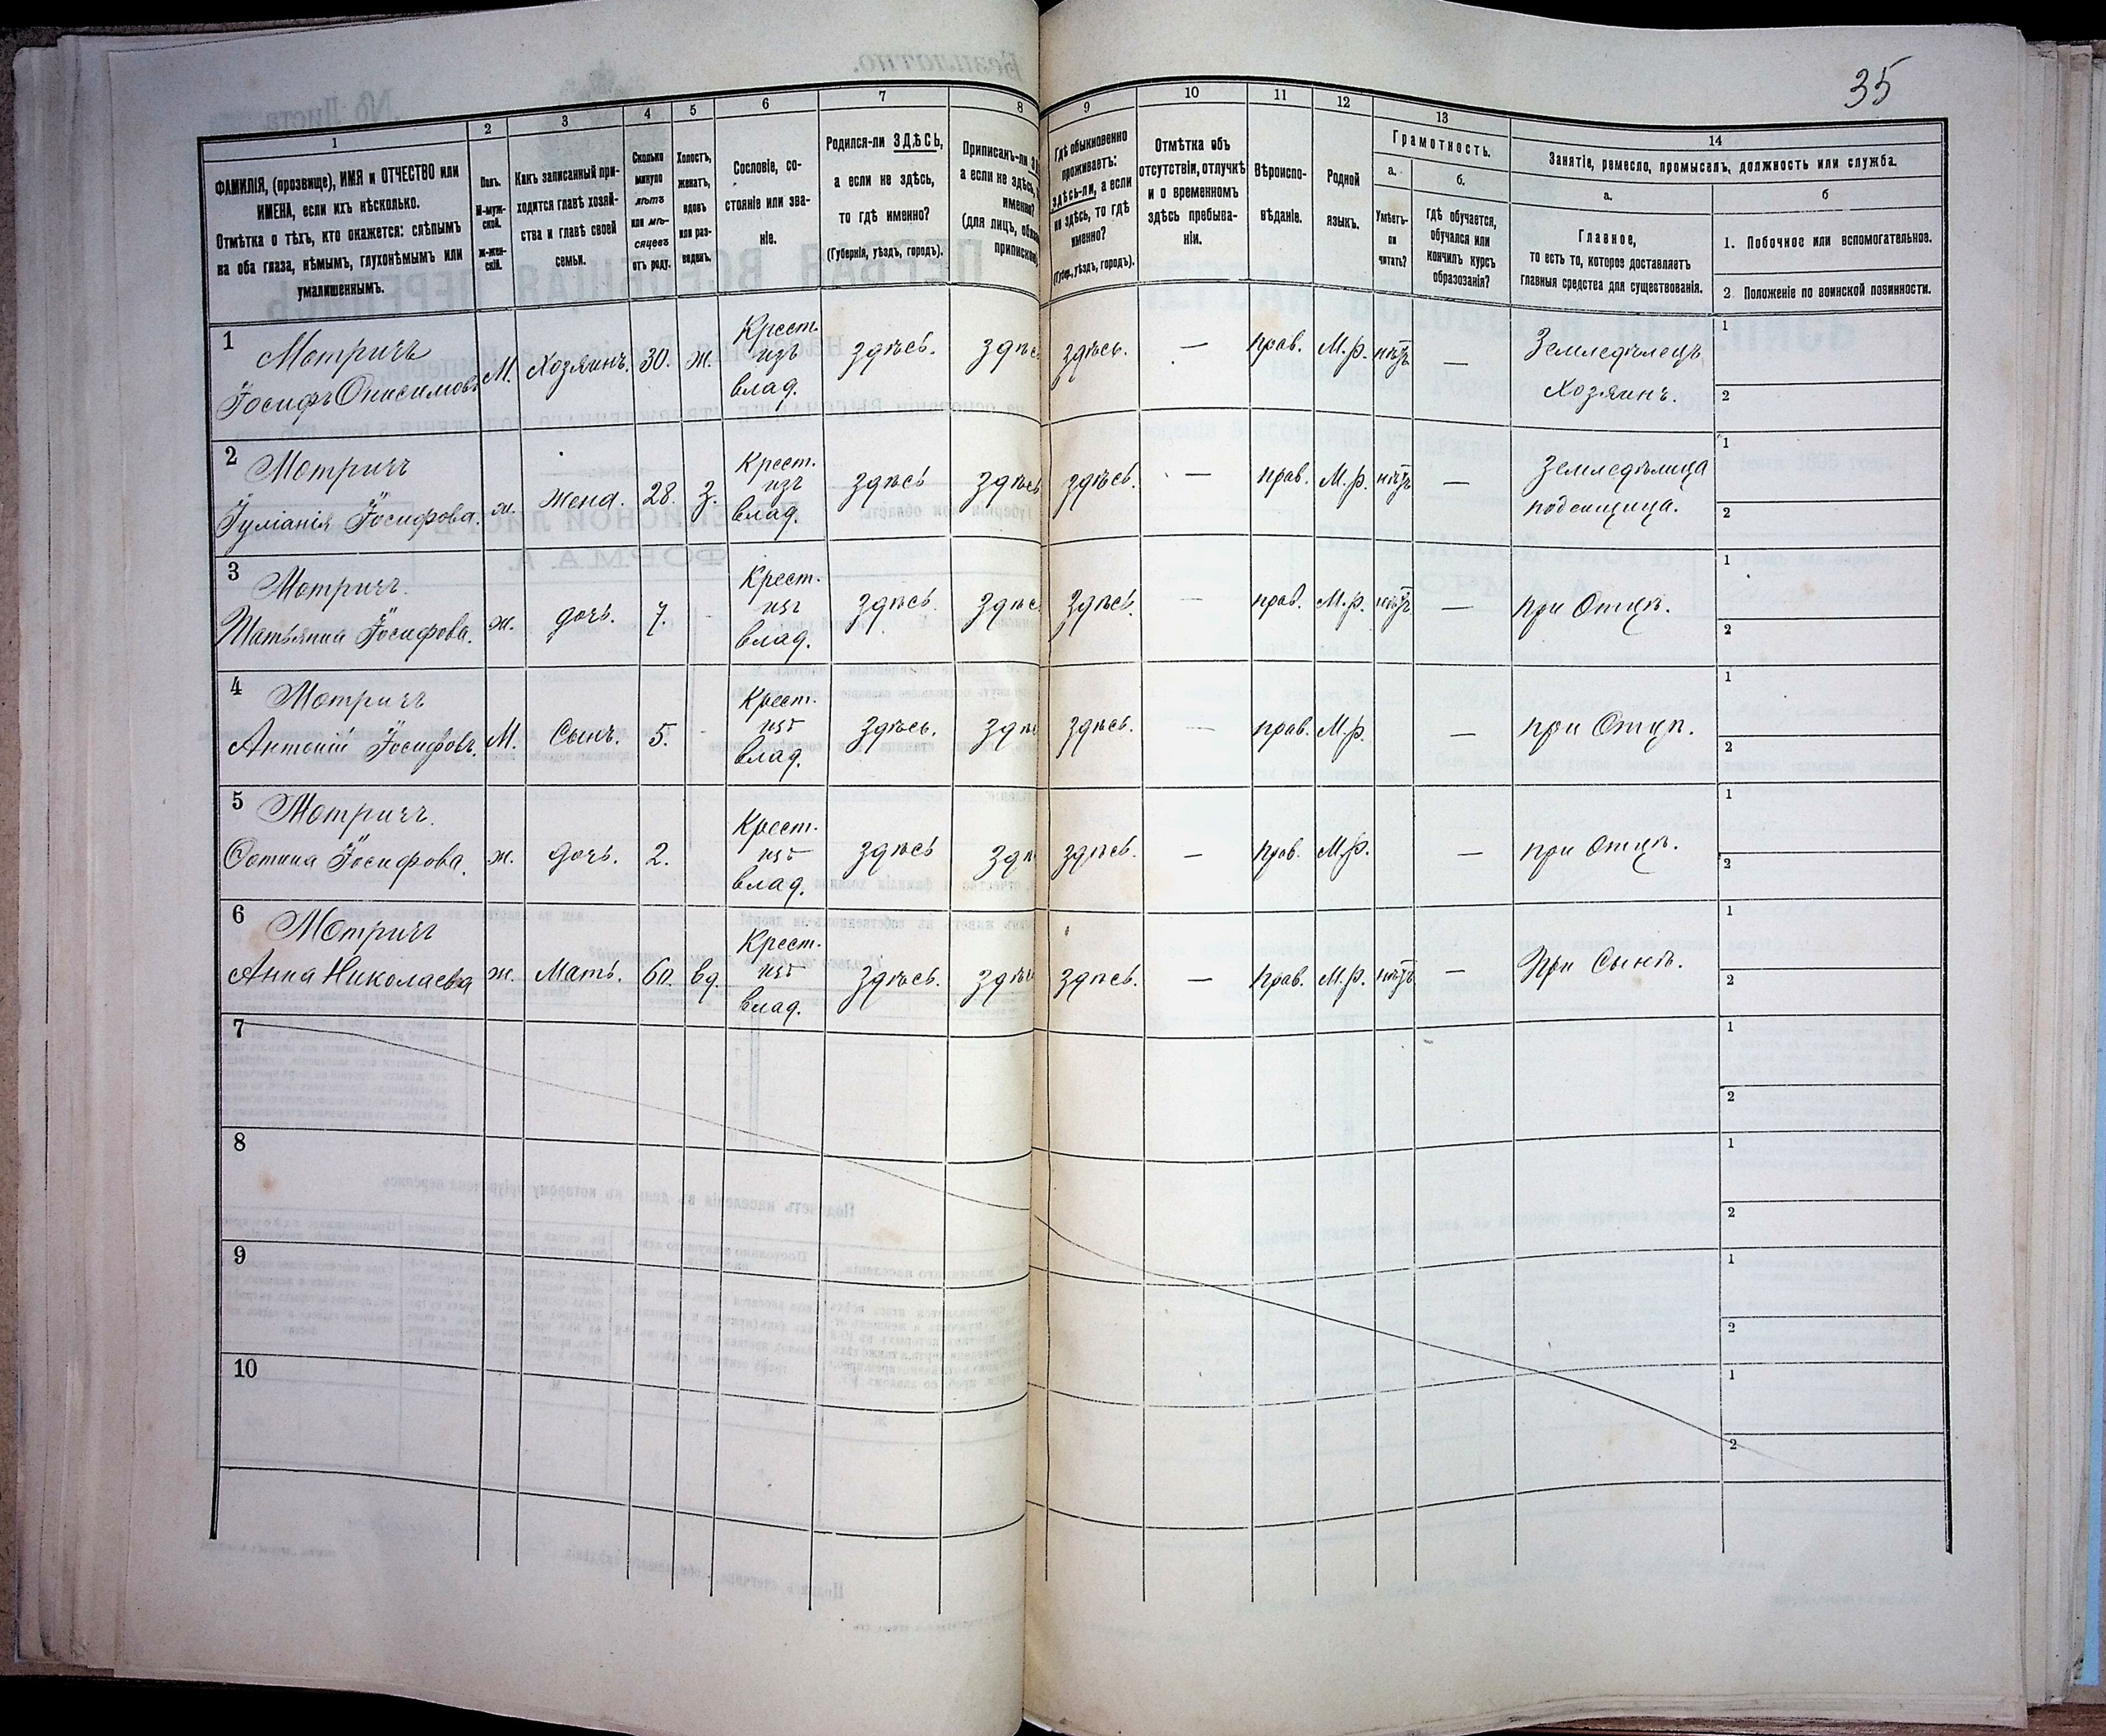 35
1
2
3
4
5
6
7
8
9
10
11
12
13
14
ФАМИЛІЯ, (прозвище), ИМЯ и ОТЧЕСТВО или
ИМЕНА, если ихъ нѣсколько.
Отмѣтка о тѣхъ, кто окажется: слѣпымъ
на оба глаза, нѣмымъ, глухонѣмымъ или
умалишеннымъ.
Полъ.
М-муж-
ской.
Ж-жен-
скій.
Какъ записанный при-
ходится главѣ хозяй-
ства и главѣ своей
семьи.
Сколько
минуло
лѣтъ
или мѣ-
сяцевъ
отъ роду.
Холостъ,
женатъ,
вдовъ
или раз-
веденъ.
Сословіе, со-
стояніе или зва-
ніе.
Родился-ли ЗДѢСЬ,
а если не здѣсь,
то гдѣ именно?
(Губернія, уѣздъ, городъ).
Приписанъ-ли
а если не здѣсь,
именно?
(для лицъ,
Гдѣ обыкновенно
проживаетъ:
здѣсь-ли, а если
не здѣсь, то гдѣ
именно?
(Губер., уѣздъ, городъ).
Отмѣтка объ
отсутствіи, отлучкѣ
и о временномъ
здѣсь пребыва-
ніи.
Вѣроиспо-
вѣданіе.
Родной
языкъ.
Грамотность.
а.
б.
Умѣетъ-
ли
читать?
Гдѣ обучается,
обучался или
кончилъ курсъ
образованія?
Занятіе, ремесло, промыселъ, должность или служба.
а.
б
Главное,
то есть то, которое доставляетъ
главныя средства для существованія.
1. Побочное или вспомогательное.
2 Положеніе по воинской повинности.
1
Мотричъ
Іосифъ Онисимовъ
М.
Хозяинъ.
30.
ж.
Крест.
изъ
влад.
здѣсь.
здѣс
здѣсь.
—
прав.
М.р.
нѣтъ
—
Земледѣлецъ
Хозяинъ.
1
2
2
Мотричъ
Іуліанія Іосифова.
ж.
жена.
28.
з.
Крест.
изъ
влад.
здѣсь
здѣсь
здѣсь.
—
прав.
М.р.
нѣтъ
—
Земледѣлица
поденщица.
1
2
3
Мотричъ.
Татьяна Іосифова.
ж.
дочь.
7.
-
Крест.
изъ
влад.
здѣсь.
здѣс
здѣсь.
—
прав.
М.р.
нѣтъ
—
при Отцѣ.
1
2
4
Мотричъ
Антоній Іосифовъ.
М.
Сынъ.
5.
-
Крест.
изъ
влад.
здѣсь.
здѣ
здѣсь.
—
прав.
М.р.
—
при Отцѣ.
1
2
5
Мотричъ.
Іосифова.
ж.
дочь.
2.
Крест.
изъ
влад.
здѣсь
здѣ
здѣсь.
—
прав.
М.р.
—
при отцѣ.
1
2
6
Мотричъ
Анна Николаева
ж.
Мать.
60.
вд.
Крест.
изъ
влад.
здѣсь.
здѣс
здѣсь.
—
прав.
М.р.
нѣтъ
—
При Сынѣ.
1
2
7
1
2
8
1
2
9
1
2
10
1
2